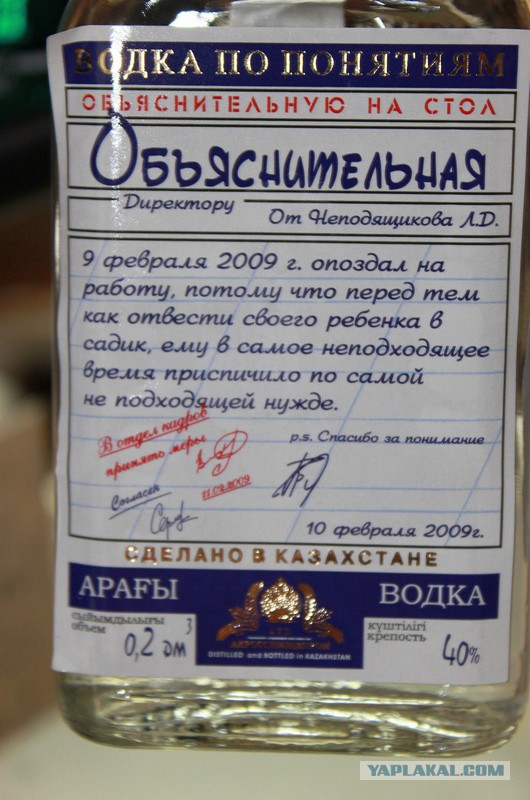 ВОДКА ПО ПОНЯТИЯМ
ОБЪЯСНИТЕЛЬНУЮ НА СТОЛ
Объяснительная
Директору
От Неподящикова Л.Д.
9 февраля 2009 г. опоздал на
работу, потому что перед тем
как отвести своего ребенка в
садик, ему в самое неподходящее
время приспичило по самой
не подходящей нужде.
В отдел кадров
принять меры
11.02.2009
p.s. Спасибо за понимание
Согласен
10 февраля 2009г.
СДЕЛАНО В КАЗАХСТАНЕ
АРАҒЫ
ВОДКА
сыйымдылығы
объем
0,2 дм3
DISTILLED and BOTTLED in KAZAKHSTAN
күштілігі
крепость
40%
YAPLAKAL.COM